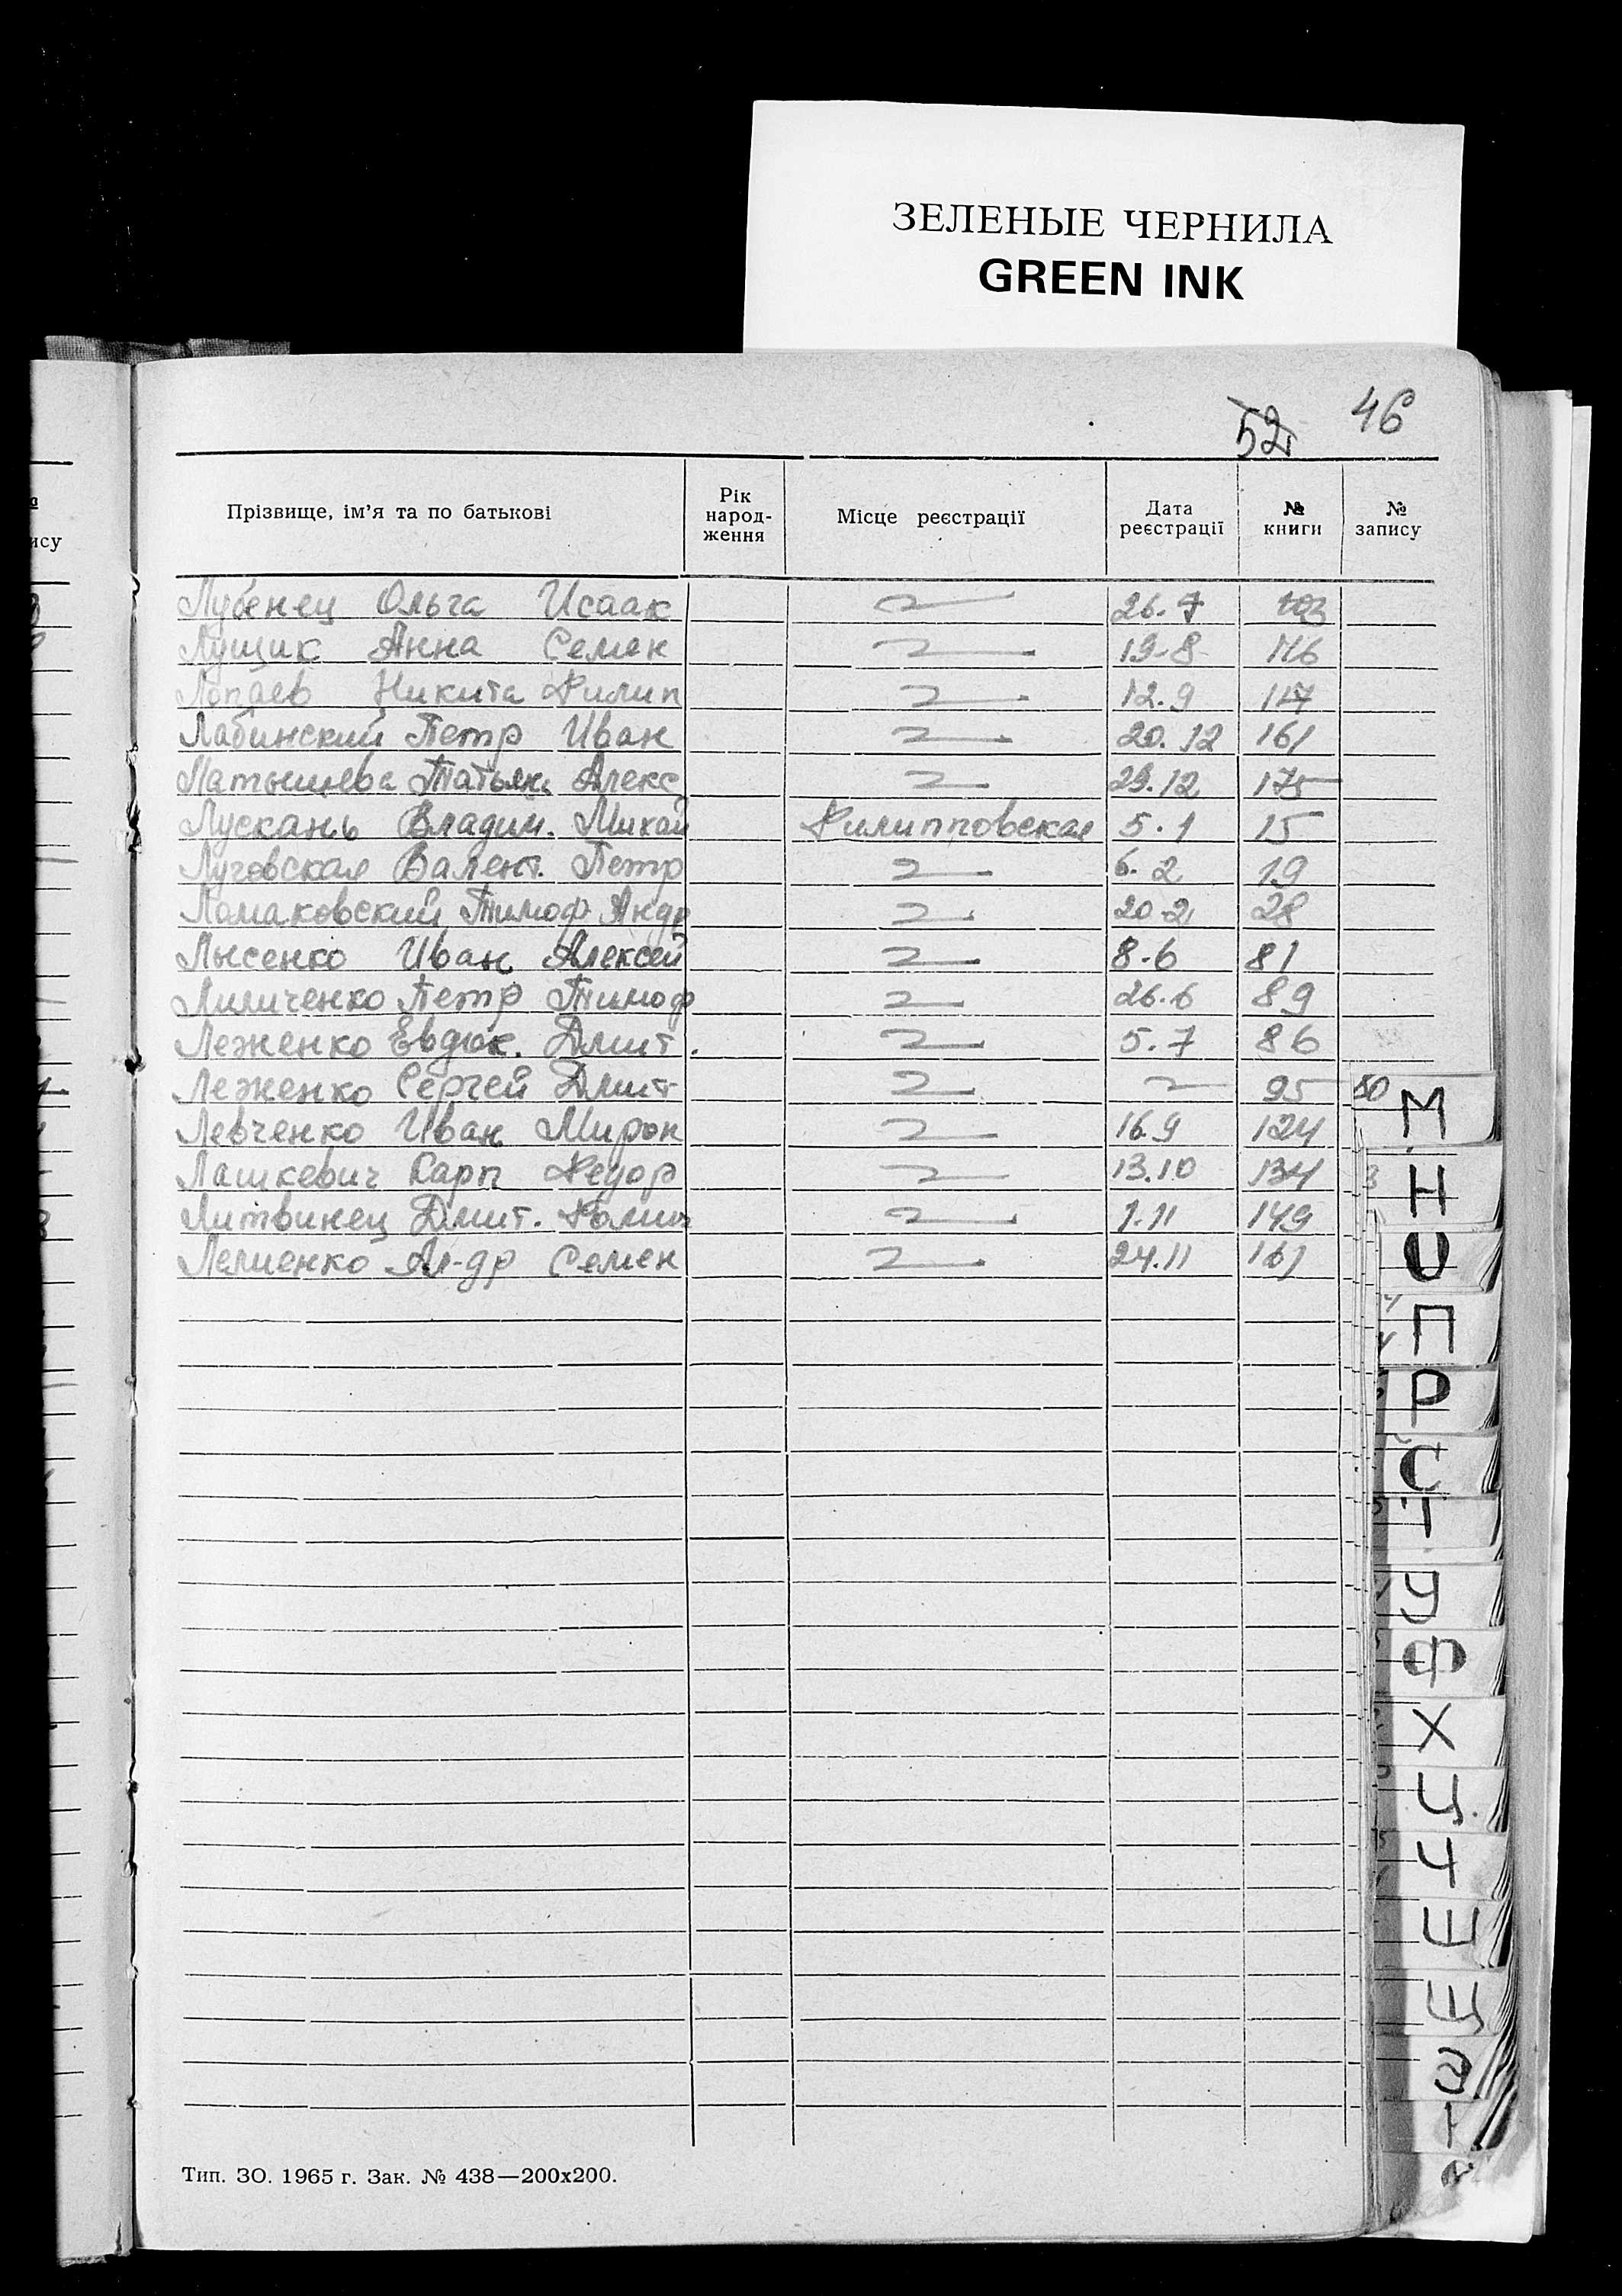 ЗЕЛЕНЫЕ ЧЕРНИЛА
GREEN INK
52 46
Прізвище, ім'я та по батькові Рік народ-ження Місце реєстрації Дата реєстрації № книги № запису
Лубенец Ольга Исаак 26.7
Лущик Анна Семен 19.8 116
Лопаев Никита Филип 12.9 117
Лабинский Петр Иван 20.12 161
Латышева Татьян Алекс 29.12 175
Лускань Владим. Михай Филипповская 5.1 15
Лучевская Валент. Петр 6.2 19
Ломаковский Тимоф Андр 20.2 28
Лысенко Иван Алексей 8.6 81
Лиличенко Петр Тимоф 26.6 89
Леженко Евдок. Дмит. 5.7 86
Леженко Сергей Дмит 95 80
Левченко Иван Мирон 16.9 124
Лашкевич Карп Федор 13.10 134
Литвинец Дмит. Фомич 1.11 149
Лелиенко Ал-др Семен 24.11 161
М
Н
О
П
Р
С
Т
У
Ф
Х
Ц
Ч
Ш
Щ
Э
Тип. ЗО. 1965 г. Зак. № 438—200х200.